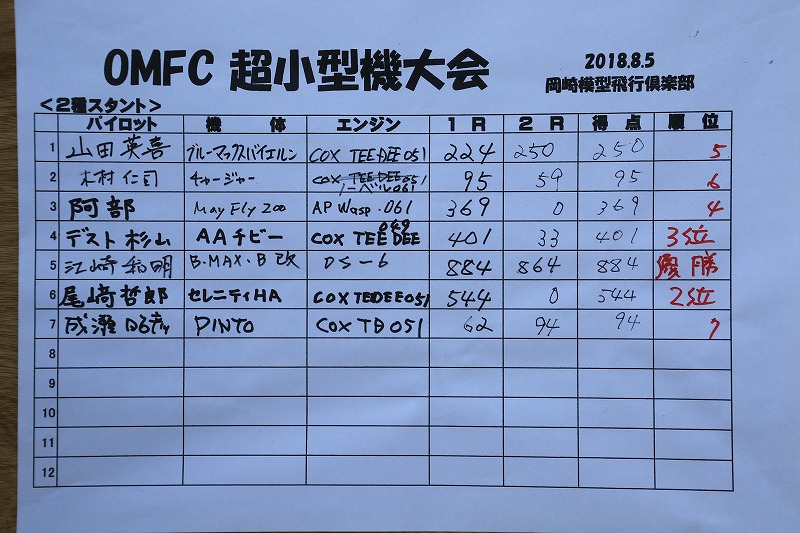 OMFC 超小型機大会
2018.8.5
岡崎模型飛行倶楽部
＜2種スタント＞
パイロット 機 体 エンジン 1 R 2 R 得 点 順 位
1 山田英喜 ブルーマックスバイエルン COX TEE DEE 051 224 250 250 5
2 木村仁司 チャージャー COX TEE DEE 051 ノーベル061 95 59 95 6
3 阿部 May Fly 200 AP Wasp .061 369 0 369 4
4 デスト杉山 AAチビー COX TEE DEE 049 401 33 401 3位
5 江崎 和明 B.MAX.B改 DS-6 884 864 884 優勝
6 尾崎哲郎 セレニティHA COX TEDEE051 544 0 544 2位
7 成瀬 PINTO COX TD 051 62 94 94 7
8
9
10
11
12